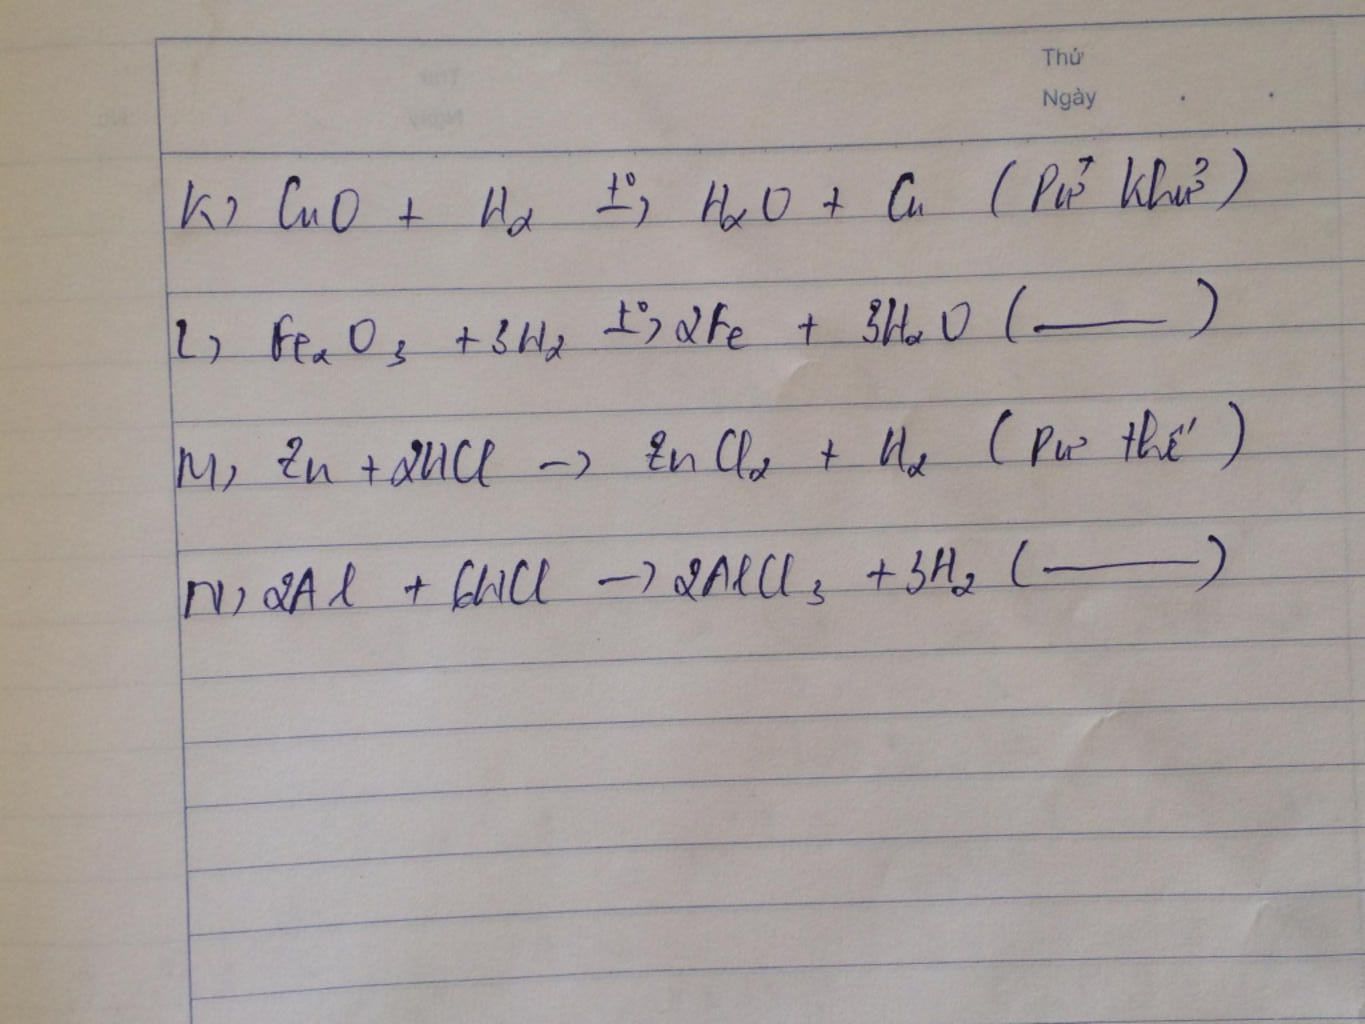 Thứ
Ngày . .
K) CuO + H₂ t°→ H₂O + Cu (Pứ khử)
L) Fe₂O₃ + 3H₂ t°→ 2Fe + 3H₂O (———)
M) Zn + 2HCl → ZnCl₂ + H₂ (Pư thế)
N) 2Al + 6HCl → 2AlCl₃ + 3H₂ (———)